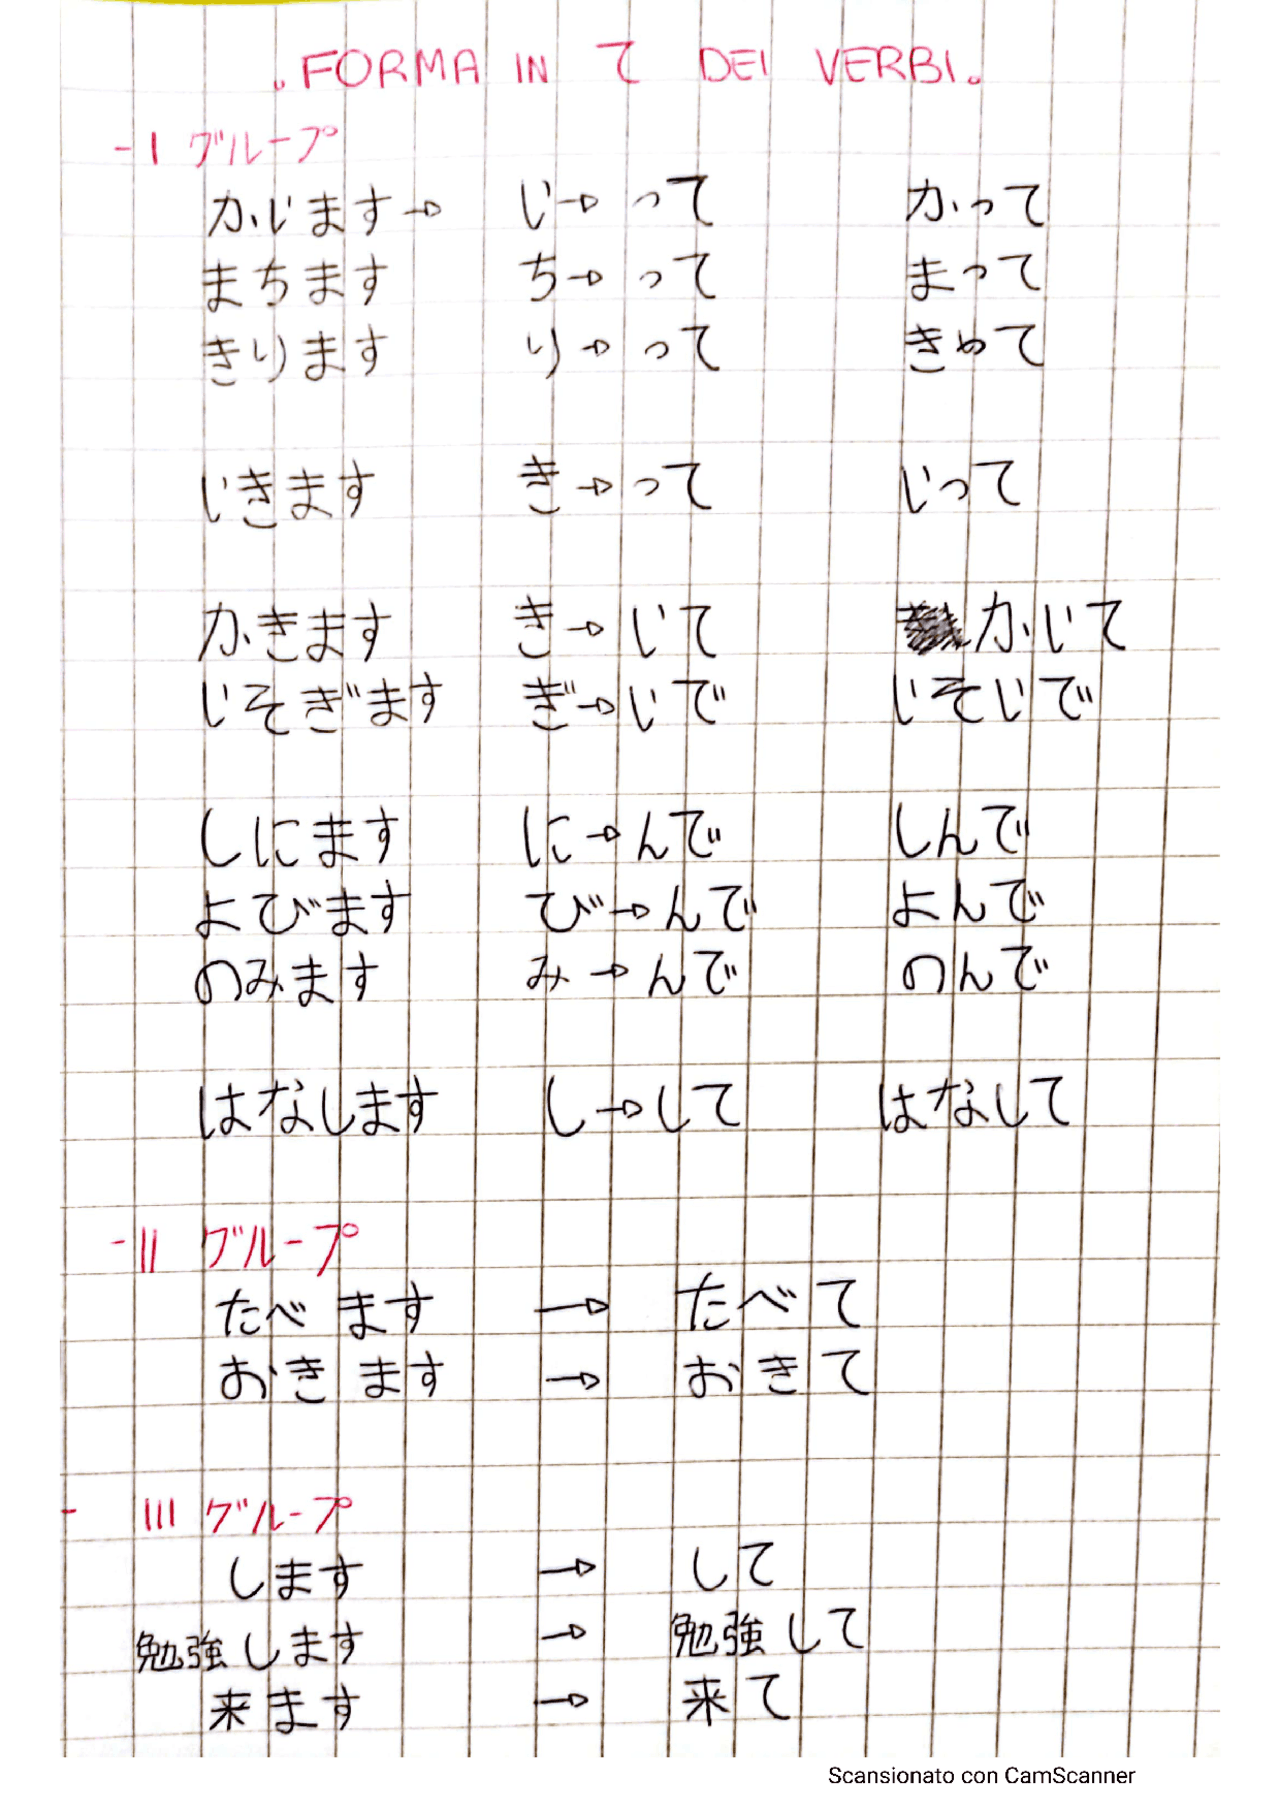 . FORMA IN て DEI VERBI.
- I グループ
かいます → い → って かって
まちます ち → って まって
きります り → って きって
いきます き → って いって
かきます き → いて かいて
いそぎます ぎ → いで いそいで
しにます に → んで しんで
よびます び → んで よんで
のみます み → んで のんで
はなします し → して はなして
- II グループ
たべます → たべて
おきます → おきて
- III グループ
します → して
勉強します → 勉強して
来ます → 来て
Scansionato con CamScanner